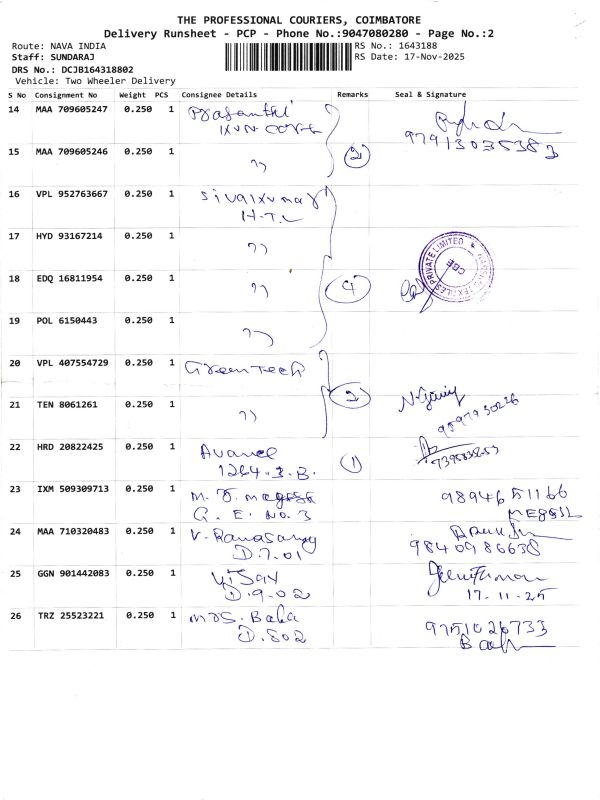 THE PROFESSIONAL COURIERS, COIMBATORE
Delivery Runsheet - PCP - Phone No.:9047080280 - Page No.:2
Route: NAVA INDIA
RS No.: 1643188
Staff: SUNDARAJ
RS Date: 17-Nov-2025
DRS No.: DCJB164318802
Vehicle: Two Wheeler Delivery
S No Consignment No Weight PCS Consignee Details Remarks Seal & Signature
14 MAA 709605247 0.250 1 Prasanthi
97913035383
15 MAA 709605246 0.250 1 " 2
16 VPL 952763667 0.250 1 Sivakumar
H.T.L
17 HYD 93167214 0.250 1 "
PRIVATE LIMITED
CBE
18 EDQ 16811954 0.250 1 " 4
19 POL 6150443 0.250 1 "
20 VPL 407554729 0.250 1 Green Tech
2
21 TEN 8061261 0.250 1 "
9597930226
22 HRD 20822425 0.250 1
1264.3.B. 1
23 IXM 509309713 0.250 1 9894651166
G. E. No. 3
24 MAA 710320483 0.250 1 V. Ramasamy
D.7.01 9840986638
25 GGN 901442083 0.250 1
D.902 17-11-25
26 TRZ 25523221 0.250 1 Mrs. Baba 9751026733
D.802